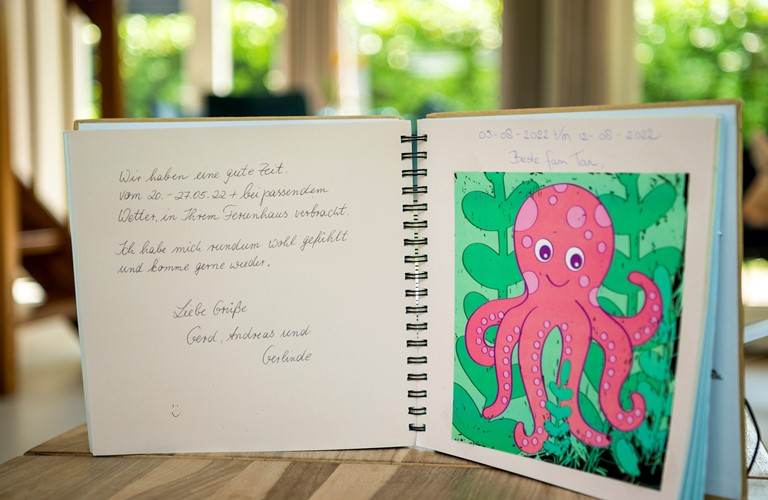 Wir haben eine gute Zeit.
vom 20.-27.05.22 + bei passendem
Wetter, in Ihrem Ferienhaus verbracht.
Ich habe mich rundum wohl gefühlt
und komme gerne wieder.
Liebe Grüße
Gerd, Andreas und
Gerlinde
:)
05-08-2022 t/m 12-08-2022
Beste fam Tan,